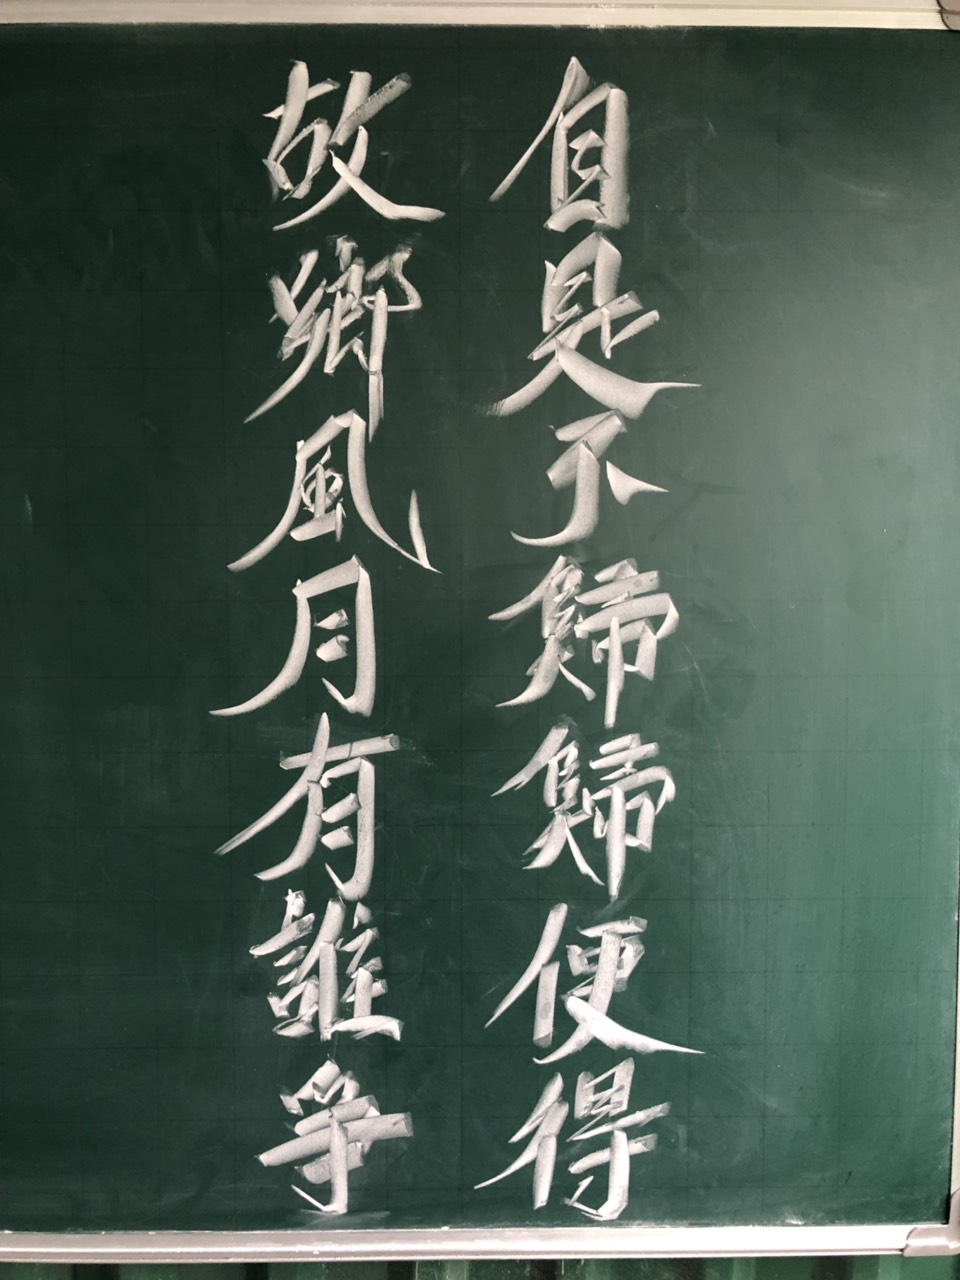 自是不歸歸便得
故鄉風月有誰爭